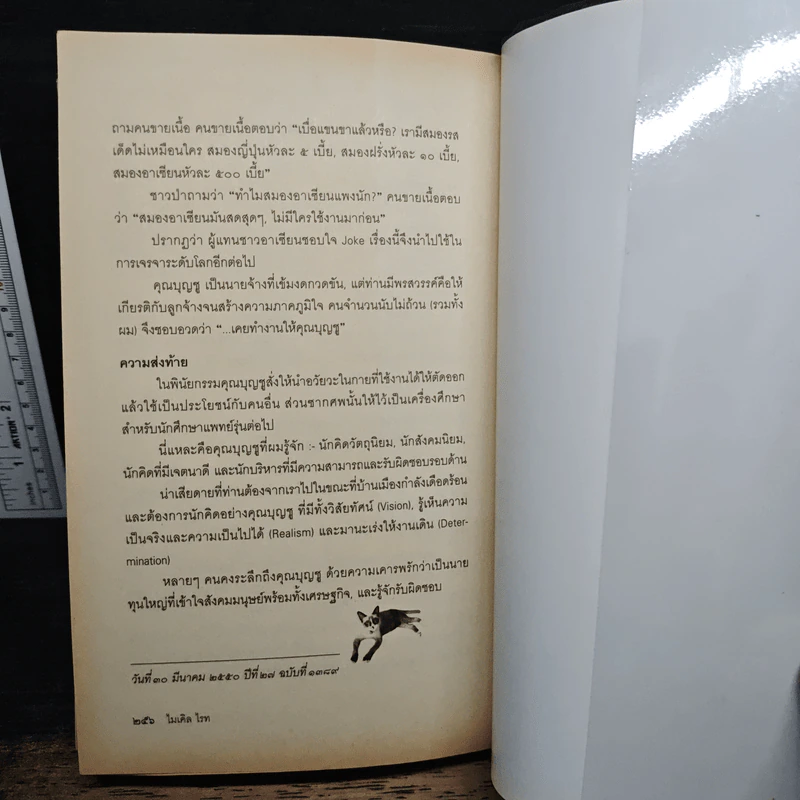 ถามคนขายเนื้อ คนขายเนื้อตอบว่า “เบื่อแขนขาแล้วหรือ? เรามีสมองรส
เด็ดไม่เหมือนใคร สมองญี่ปุ่นหัวละ ๕ เบี้ย, สมองฝรั่งหัวละ ๑๐ เบี้ย,
สมองอาเซียนหัวละ ๕๐๐ เบี้ย”
ชาวป่าถามว่า “ทำไมสมองอาเซียนแพงนัก?” คนขายเนื้อตอบ
ว่า “สมองอาเซียนมันสดสุดๆ, ไม่มีใครใช้งานมาก่อน”
ปรากฏว่า ผู้แทนชาวอาเซียนชอบใจ Joke เรื่องนี้จึงนำไปใช้ใน
การเจรจาระดับโลกอีกต่อไป
คุณบุญชู เป็นนายจ้างที่เข้มงดกวดขัน, แต่ท่านมีพรสวรรค์คือให้
เกียรติกับลูกจ้างจนสร้างความภาคภูมิใจ คนจำนวนนับไม่ถ้วน (รวมทั้ง
ผม) จึงชอบอวดว่า “...เคยทำงานให้คุณบุญชู”
ความส่งท้าย
ในพินัยกรรมคุณบุญชูสั่งให้นำอวัยวะในกายที่ใช้งานได้ให้ตัดออก
แล้วใช้เป็นประโยชน์กับคนอื่น ส่วนซากศพนั้นให้ไว้เป็นเครื่องศึกษา
สำหรับนักศึกษาแพทย์รุ่นต่อไป
นี่แหละคือคุณบุญชูที่ผมรู้จัก :- นักคิดวัตถุนิยม, นักสังคมนิยม,
นักคิดที่มีเจตนาดี และนักบริหารที่มีความสามารถและรับผิดชอบรอบด้าน
น่าเสียดายที่ท่านต้องจากเราไปในขณะที่บ้านเมืองกำลังเดือดร้อน
และต้องการนักคิดอย่างคุณบุญชู ที่มีทั้งวิสัยทัศน์ (Vision), รู้เห็นความ
เป็นจริงและความเป็นไปได้ (Realism) และมานะเร่งให้งานเดิน (Deter-
mination)
หลายๆ คนคงระลึกถึงคุณบุญชู ด้วยความเคารพรักว่าเป็นนาย
ทุนใหญ่ที่เข้าใจสังคมมนุษย์พร้อมทั้งเศรษฐกิจ, และรู้จักรับผิดชอบ
วันที่ ๓๐ มีนาคม ๒๕๕๐ ปีที่ ๒๗ ฉบับที่ ๑๓๘๙
๒๕๖ ไมเคิล ไรท